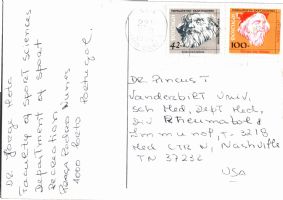 Dr. Jorge Mota
Faculty of Sport Sciences
Department of Sport
Recreation
Praça Pedro Nunes
4000 Porto Portugal
42-
100-
DR Pincus T
Vanderbilt Univ,
Sch Med, Dept Med,
Div Rheumatol &
Immunol, T-3218
Med CTR N, Nashville
TN 37232
USA